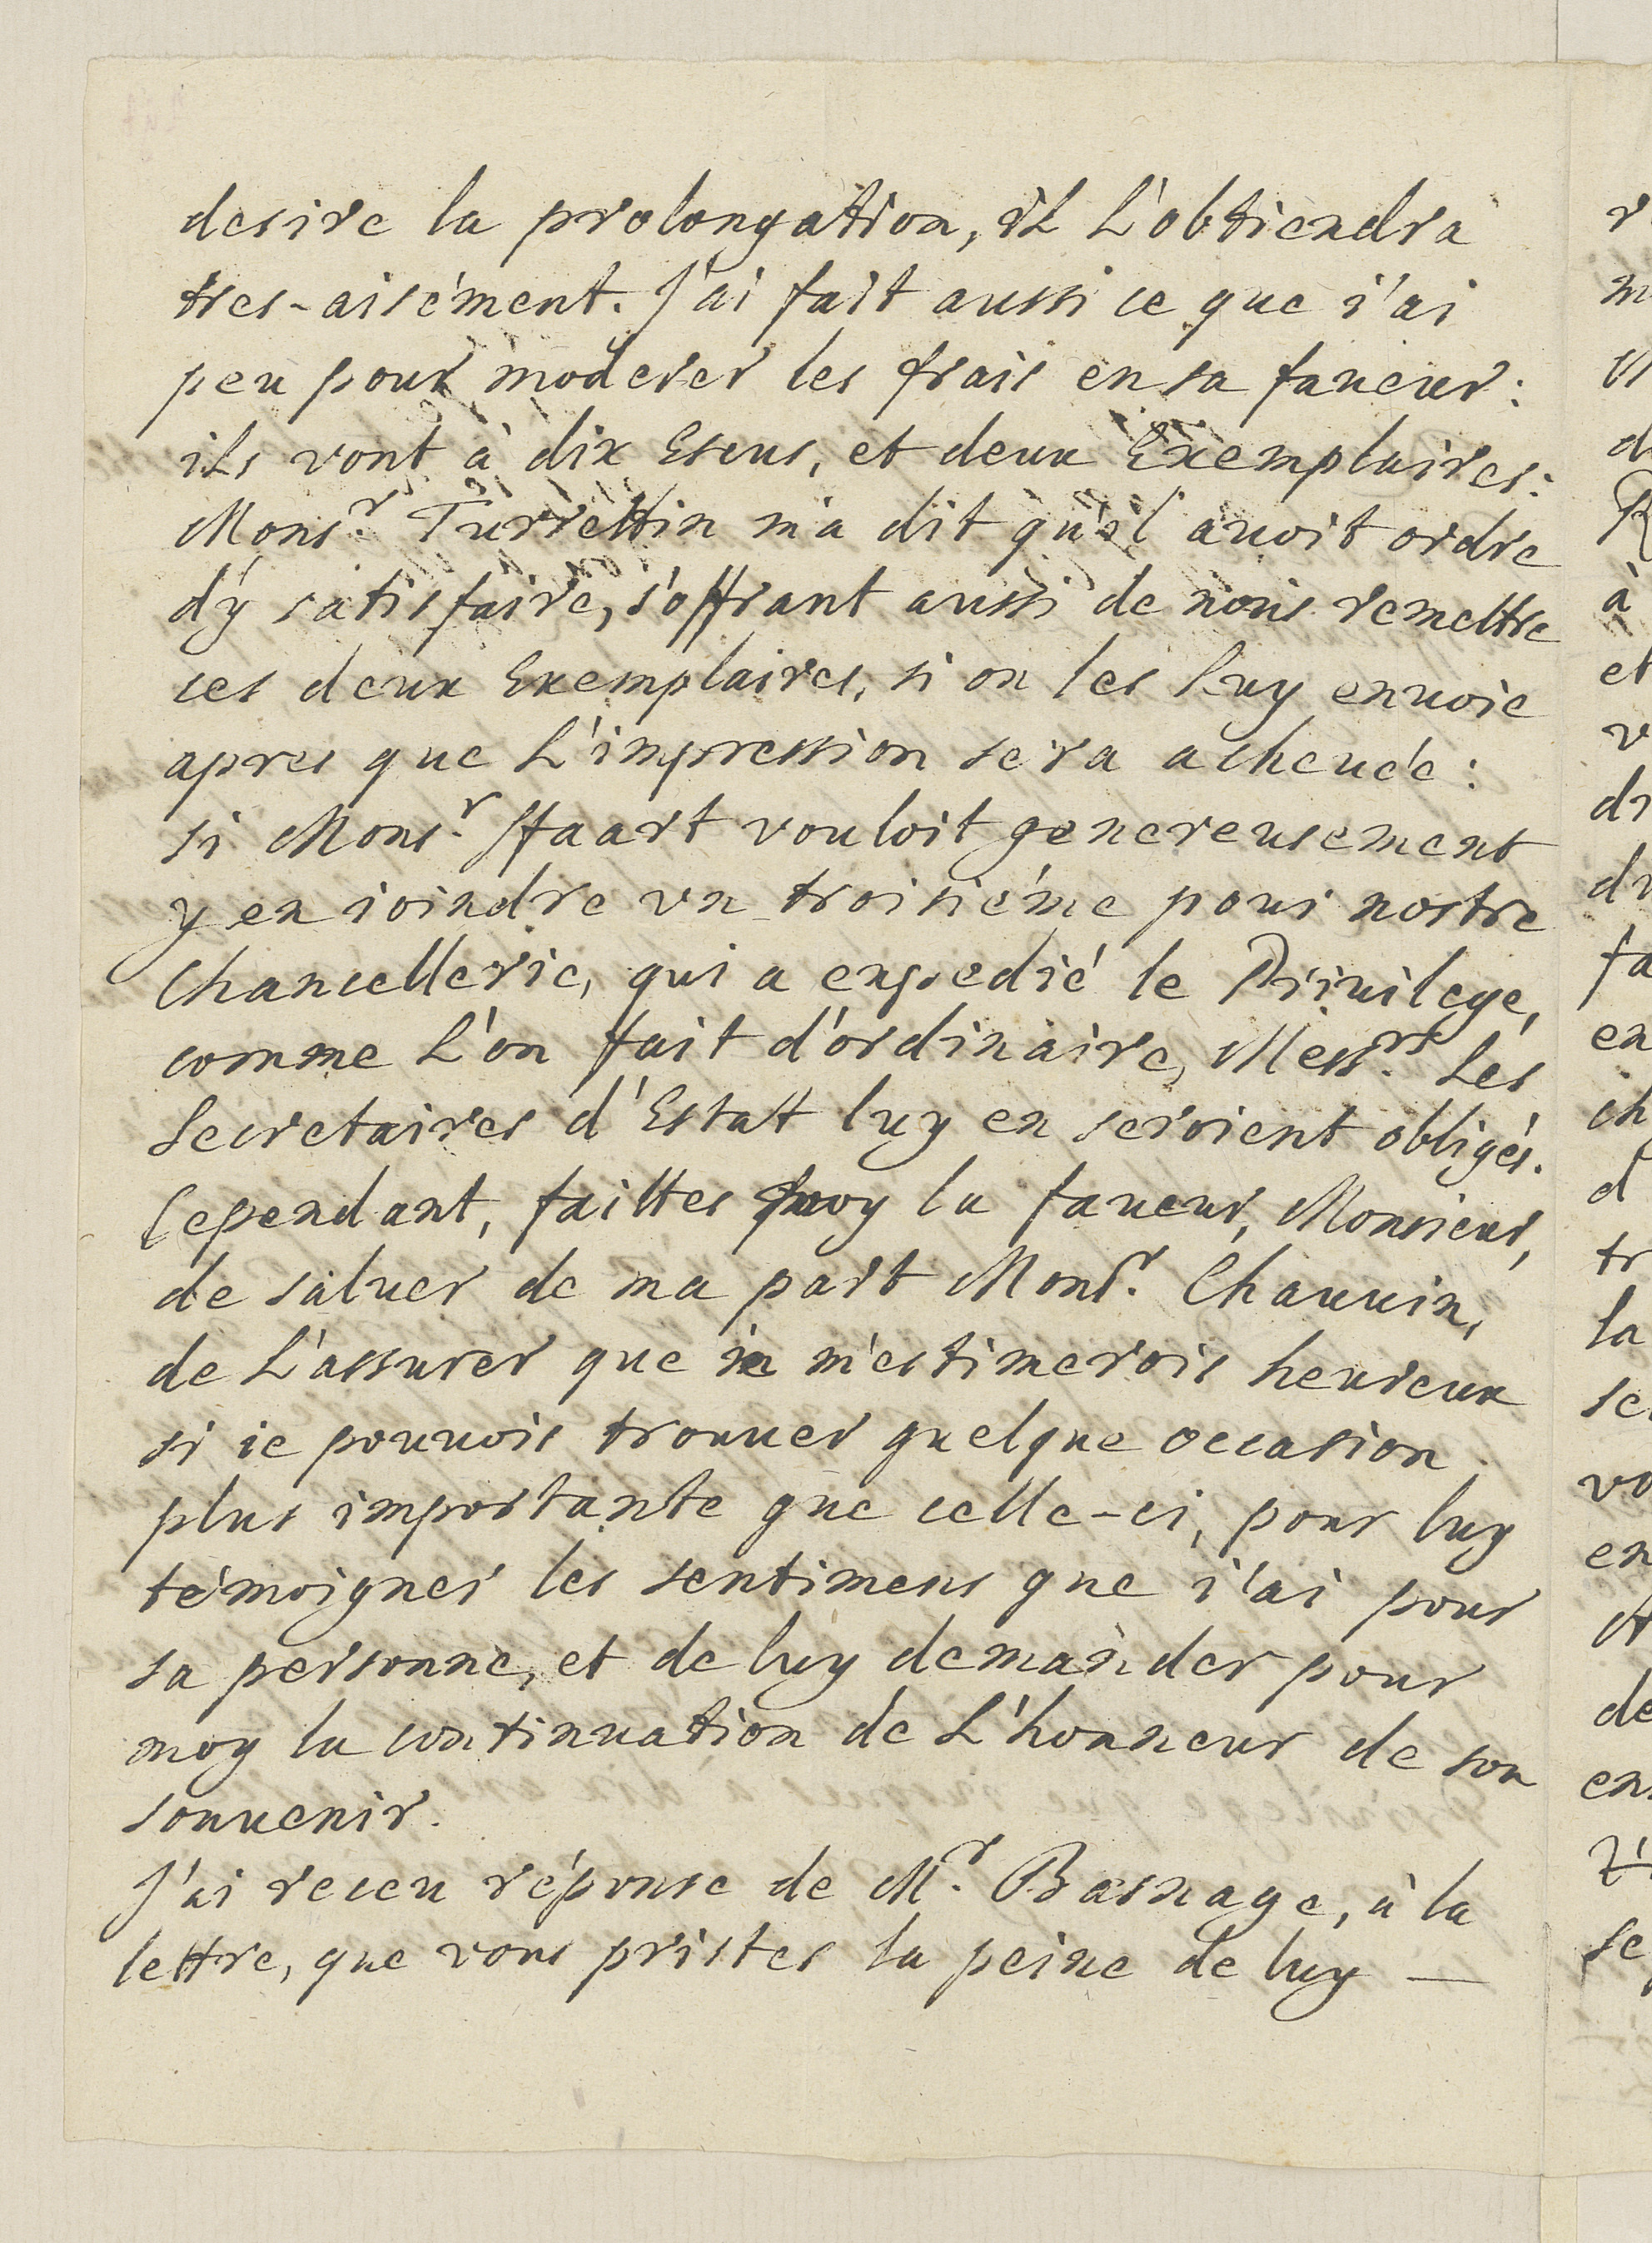 desire la prolongation, il L'obtiendra
tres-aisément. J'ai fait aussi ce que i'ai
peu pour moderer les frais en sa faueur:
ils vont à dix Escus, et deux Exemplaires:
Monsr. Turrettin m'a dit qu'il auoit ordre
d'y satisfaire, s'offrant aussi de nous remettre
ces deux Exemplaires, si on les luy enuoie
apres que L'impression sera acheuée:
si Monsr. Haart vouloit genereusement
y en ioindre vn troisiéme pour nostre
Chancellerie, qui a expedié le Priuilege,
comme L'on fait d'ordinaire, Messrs. Les
Secretaires d'Estat luy en seroient obligés.
Cependant, faittes moy la faueur, Monsieur,
de saluer de ma part Monsr. Chauuin,
de L'assurer que ie m'estimerois heureux
si ie pouuois trouuer quelque occasion
plus importante que celle-ci, pour luy
témoigner les sentimens que i'ai pour
sa personne, et de luy demander pour
moy la continuation de L'honneur de son
souuenir.
J'ai receu réponse de Mr. Basnage, à la
lettre, que vous pristes la peine de luy —